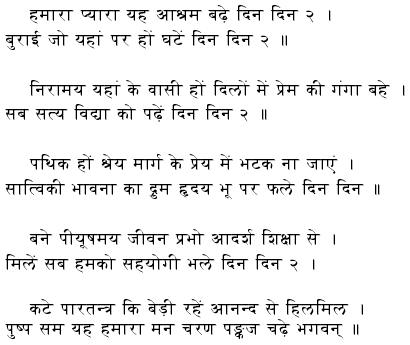 हमारा प्यारा यह आश्रम बढ़े दिन दिन २ ।
बुराई जो यहां पर हों घटें दिन दिन २ ॥
निरामय यहां के वासी हों दिलों में प्रेम की गंगा बहे ।
सब सत्य विद्या को पढ़ें दिन दिन २ ॥
पथिक हों श्रेय मार्ग के प्रेय में भटक ना जाएं ।
सात्विकी भावना का द्रुम हृदय भू पर फले दिन दिन ॥
बने पीयूषमय जीवन प्रभो आदर्श शिक्षा से ।
मिलें सब हमको सहयोगी भले दिन दिन २ ।
कटे पारतन्त्र कि बेड़ी रहें आनन्द से हिलमिल ।
पुष्प सम यह हमारा मन चरण पङ्कज चढ़े भगवन् ॥